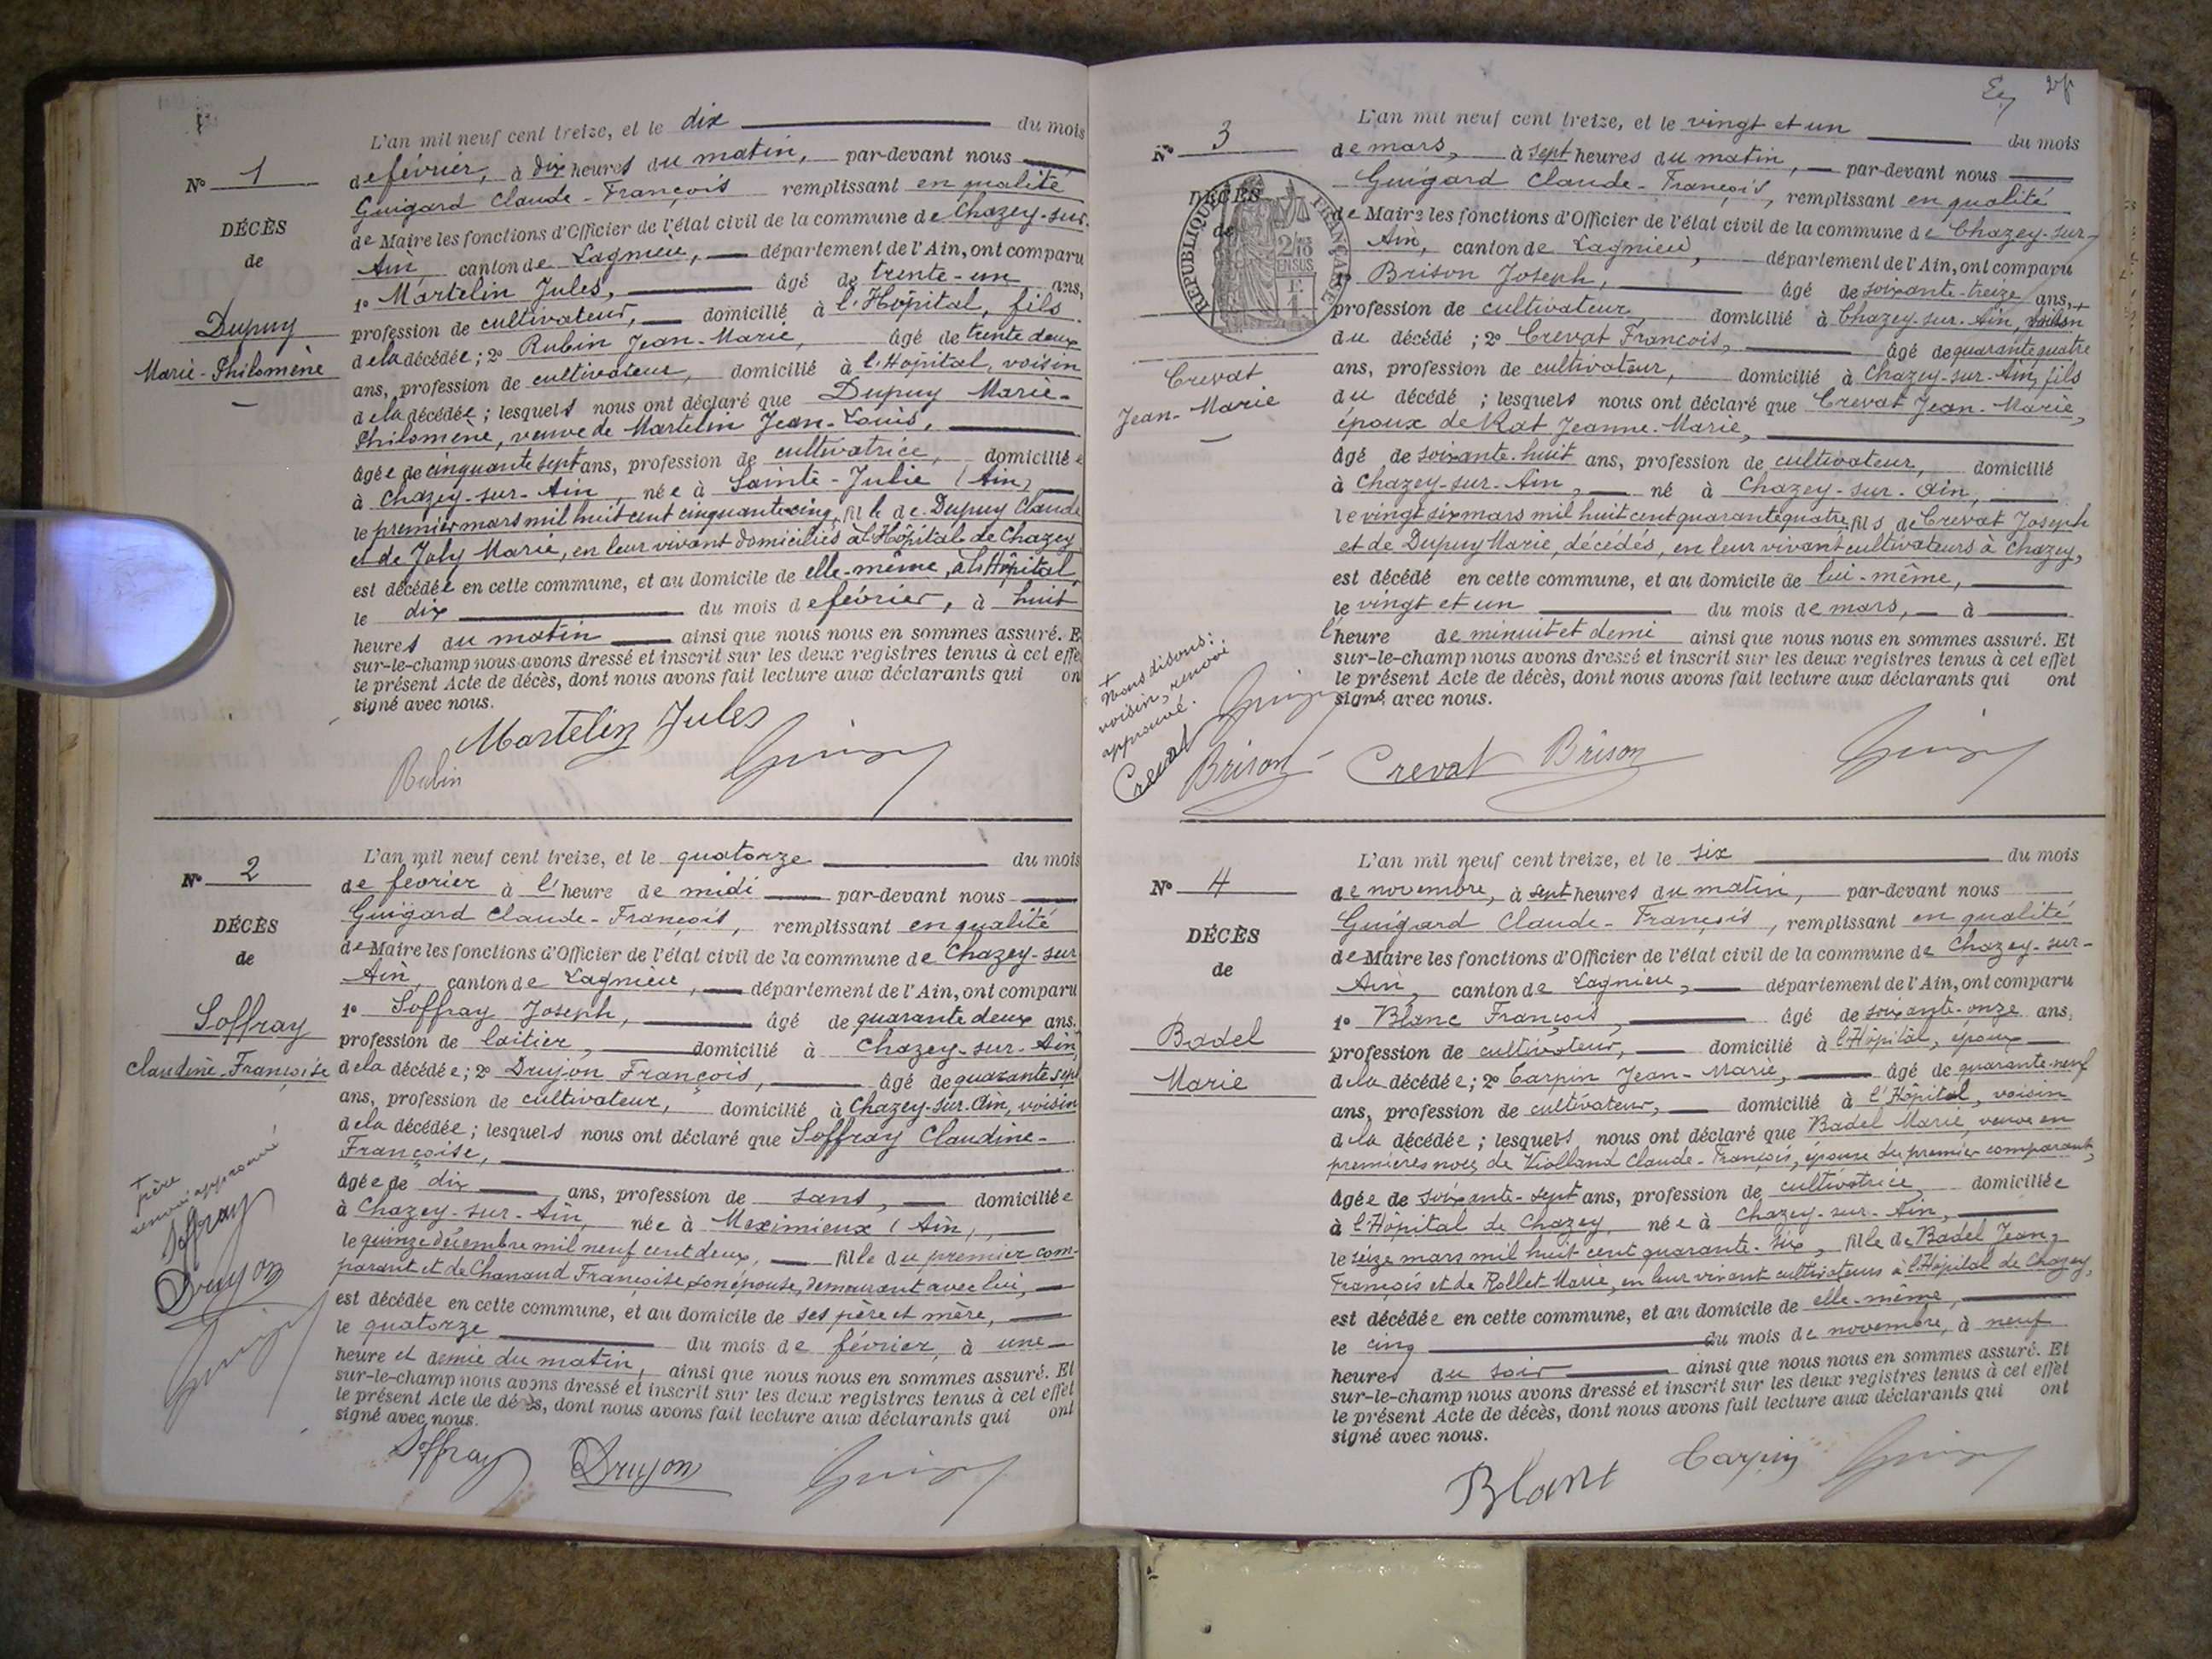 N° 1
DÉCÈS
de
Dupuy
Marie-Philomène
L'an mil neuf cent treize, et le dix du mois
de février, à dix heures du matin, par-devant nous
Guigard Claude-François remplissant en qualité
de Maire les fonctions d'Officier de l'état civil de la commune de Chazey-sur-
Ain, canton de Lagnieu, département de l'Ain, ont comparu
1° Martelin Jules, âgé de trente-un ans,
profession de cultivateur, domicilié à l'Hôpital, fils
de la décédée; 2° Rubin Jean-Marie, âgé de trente deux
ans, profession de cultivateur, domicilié à l'Hôpital, voisin
de la décédée; lesquels nous ont déclaré que Dupuy Marie-
Philomène, veuve de Martelin Jean-Louis,
âgée de cinquante sept ans, profession de cultivatrice, domiciliée
à Chazey-sur-Ain, née à Sainte-Julie (Ain)
le premier mars mil huit cent cinquante cinq, fille de Dupuy Claude
et de Joly Marie, en leur vivant domiciliés à l'Hôpital de Chazey
est décédée en cette commune, et au domicile de elle-même, à l'Hôpital,
le dix du mois de février, à huit
heures du matin ainsi que nous nous en sommes assuré. E
sur-le-champ nous avons dressé et inscrit sur les deux registres tenus à cet effe
le présent Acte de décès, dont nous avons fait lecture aux déclarants qui on
signé avec nous.
Martelin Jules
Rubin
N° 2
DÉCÈS
de
Soffray
Claudine-Françoise
+ père
renvoi approuvé
Soffray
Drujon
L'an mil neuf cent treize, et le quatorze du mois
de fevrier à l'heure de midi par-devant nous
Guigard Claude-François, remplissant en qualité
de Maire les fonctions d'Officier de l'état civil de la commune de Chazey-sur
Ain, canton de Lagnieu, département de l'Ain, ont comparu
1° Soffray Joseph, âgé de quarante deux ans.
profession de laitier, domicilié à Chazey-sur-Ain,
de la décédée; 2° Drujon François, âgé de quarante sept
ans, profession de cultivateur, domicilié à Chazey-sur-Ain, voisin
de la décédée; lesquels nous ont déclaré que Soffray Claudine-
Françoise,
âgée de dix ans, profession de sans, domiciliée
à Chazey-sur-Ain, née à Meximieux (Ain),
le quinze décembre mil neuf cent deux, fille du premier com-
parant et de Chanaud Françoise son épouse, demeurant avec lui,
est décédée en cette commune, et au domicile de ses père et mère,
le quatorze du mois de février, à une
heure et demie du matin, ainsi que nous nous en sommes assuré. Et
sur-le-champ nous avons dressé et inscrit sur les deux registres tenus à cet effet
le présent Acte de décès, dont nous avons fait lecture aux déclarants qui ont
signé avec nous.
Soffray Drujon
N° 3
DÉCÈS
de
RÉPUBLIQUE FRANÇAISE
2/10 EN SUS
Crevat
Jean-Marie
+ Nous disons:
voisin, renvoi
approuvé.
Crevat
Brison
L'an mil neuf cent treize, et le vingt et un du mois
de mars, à sept heures du matin, par-devant nous
Guigard Claude-François, remplissant en qualité
de Maire les fonctions d'Officier de l'état civil de la commune de Chazey-sur-
Ain, canton de Lagnieu, département de l'Ain, ont comparu
1° Brison Joseph, âgé de soixante-treize ans,
profession de cultivateur, domicilié à Chazey-sur-Ain, voisin +
du décédé; 2° Crevat François, âgé de quarante quatre
ans, profession de cultivateur, domicilié à Chazey-sur-Ain, fils
du décédé; lesquels nous ont déclaré que Crevat Jean-Marie,
époux de Rat Jeanne-Marie,
âgé de soixante-huit ans, profession de cultivateur, domicilié
à Chazey-sur-Ain, né à Chazey-sur-Ain,
le vingt six mars mil huit cent quarante quatre fils de Crevat Joseph
et de Dupuy Marie, décédés, en leur vivant cultivateurs à Chazey,
est décédé en cette commune, et au domicile de lui-même,
le vingt et un du mois de mars, à
l'heure de minuit et demi ainsi que nous nous en sommes assuré. Et
sur-le-champ nous avons dressé et inscrit sur les deux registres tenus à cet effet
le présent Acte de décès, dont nous avons fait lecture aux déclarants qui ont
signé avec nous.
Crevat Brison
N° 4
DÉCÈS
de
Badel
Marie
L'an mil neuf cent treize, et le six du mois
de novembre, à sept heures du matin, par-devant nous
Guigard Claude-François, remplissant en qualité
de Maire les fonctions d'Officier de l'état civil de la commune de Chazey-sur-
Ain, canton de Lagnieu, département de l'Ain, ont comparu
1° Blanc François, âgé de soixante-onze ans,
profession de cultivateur, domicilié à l'Hôpital, époux
de la décédée; 2° Carpin Jean-Marie, âgé de quarante-neuf
ans, profession de cultivateur, domicilié à l'Hôpital, voisin
de la décédée; lesquels nous ont déclaré que Badel Marie, veuve en
premières noces de Violland Claude-François, épouse du premier comparant,
âgée de soixante-sept ans, profession de cultivatrice domiciliée
à l'Hôpital de Chazey, née à Chazey-sur-Ain,
le seize mars mil huit cent quarante-six, fille de Badel Jean-
François et de Rollet Marie, en leur vivant cultivateurs à l'Hôpital de Chazey,
est décédée en cette commune, et au domicile de elle-même,
le cinq du mois de novembre, à neuf
heures du soir ainsi que nous nous en sommes assuré. Et
sur-le-champ nous avons dressé et inscrit sur les deux registres tenus à cet effet
le présent Acte de décès, dont nous avons fait lecture aux déclarants qui ont
signé avec nous.
Blanc Carpin